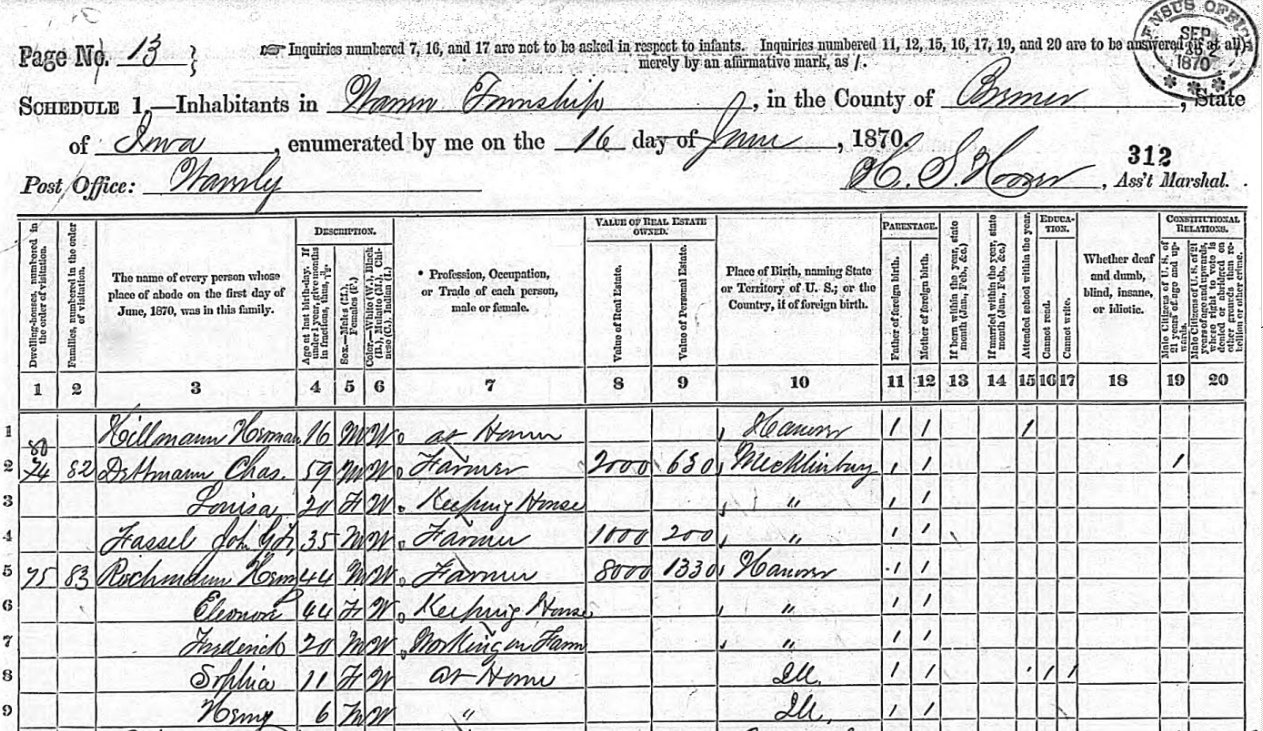 Page No. 13 }
☞ Inquiries numbered 7, 16, and 17 are not to be asked in respect to infants. Inquiries numbered 11, 12, 15, 16, 17, 19, and 20 are to be answered (if at all)
merely by an affirmative mark, as /.
CENSUS OFFICE SEP 1870
SCHEDULE 1.—Inhabitants in Warren Township, in the County of Bremer, State
of Iowa, enumerated by me on the 16 day of June, 1870.
312
Post Office: Waverly H. S. Hoover, Ass't Marshal.
Dwelling-houses, numbered in the order of visitation.
Families, numbered in the order of visitation.
The name of every person whose place of abode on the first day of June, 1870, was in this family.
DESCRIPTION.
Age at last birth-day. If under 1 year, give months in fractions, thus, 3/12
Sex.—Males (M.), Females (F.)
Color.—White (W.), Black (B.), Mulatto (M.), Chinese (C.), Indian (I.)
* Profession, Occupation, or Trade of each person, male or female.
VALUE OF REAL ESTATE OWNED.
Value of Real Estate.
Value of Personal Estate.
Place of Birth, naming State or Territory of U. S.; or the Country, if of foreign birth.
PARENTAGE.
Father of foreign birth.
Mother of foreign birth.
If born within the year, state month (Jan., Feb., &c.)
If married within the year, state month (Jan., Feb., &c.)
Attended school within the year.
EDUCATION.
Cannot read.
Cannot write.
Whether deaf and dumb, blind, insane, or idiotic.
CONSTITUTIONAL RELATIONS.
Male Citizens of U. S. of 21 years of age and upwards.
Male Citizens of U. S. of 21 years of age and upwards, whose right to vote is denied or abridged on other grounds than rebellion or other crime.
1 2 3 4 5 6 7 8 9 10 11 12 13 14 15 16 17 18 19 20
1 Hillmann Herman 16 M W at Home Hanover / / /
80
2 74 82 Dettmann Chas. 59 M W Farmer 2000 630 Mecklinburg / / /
3 Louisa 20 F W Keeping House " / /
4 Fassel John 35 M W Farmer 1000 200 " / /
5 75 83 Rochmann Herm 44 M W Farmer 8000 1330 Hanover / /
6 Eleonor 44 F W Keeping House " / /
7 Frederick 20 M W Working on Farm " / /
8 Sophia 11 F W at Home Ill. / / / /
9 Henry 6 M W " Ill. / /